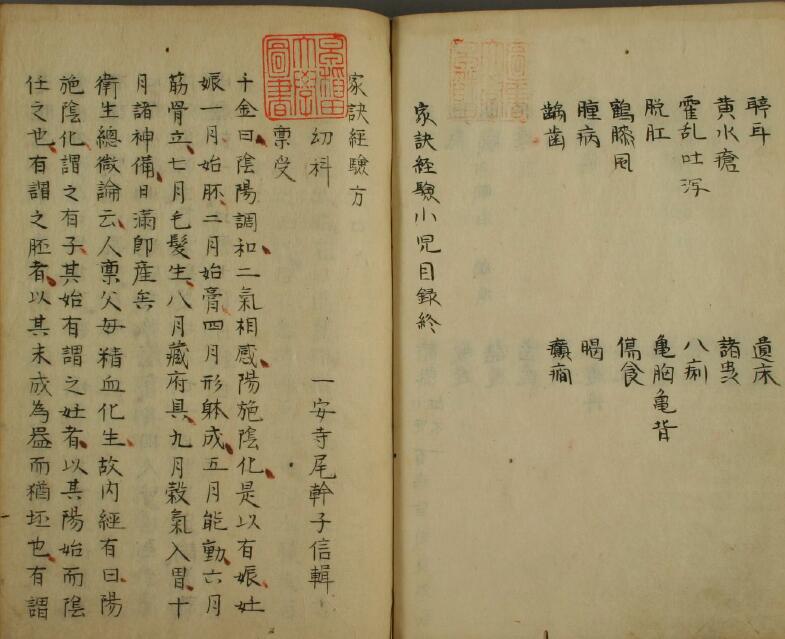 聤耳　遺床
黄水瘡　諸
霍乱吐泻　八痢
脱肛　亀胸亀背
鶴膝风　傷食
腫病　暍
齲歯　癲癇
家訣経験小児目録終
家訣経験方
幼科　一安寺尾幹子信輯
禀受
千金曰陰陽調和二氣相感陽施陰化是以有娠妊
娠一月始胚二月始膏四月形躰成五月能動六月
筋骨立七月毛髮生八月藏府具九月穀氣入胃十
月諸神備日滿即産矣
衛生總微論云人禀父母精血化生故内經有曰陽
施陰化謂之有子其始有謂之妊者以其陽始而陰
任之也有謂之胚者以其未成為器而猶坯也有謂